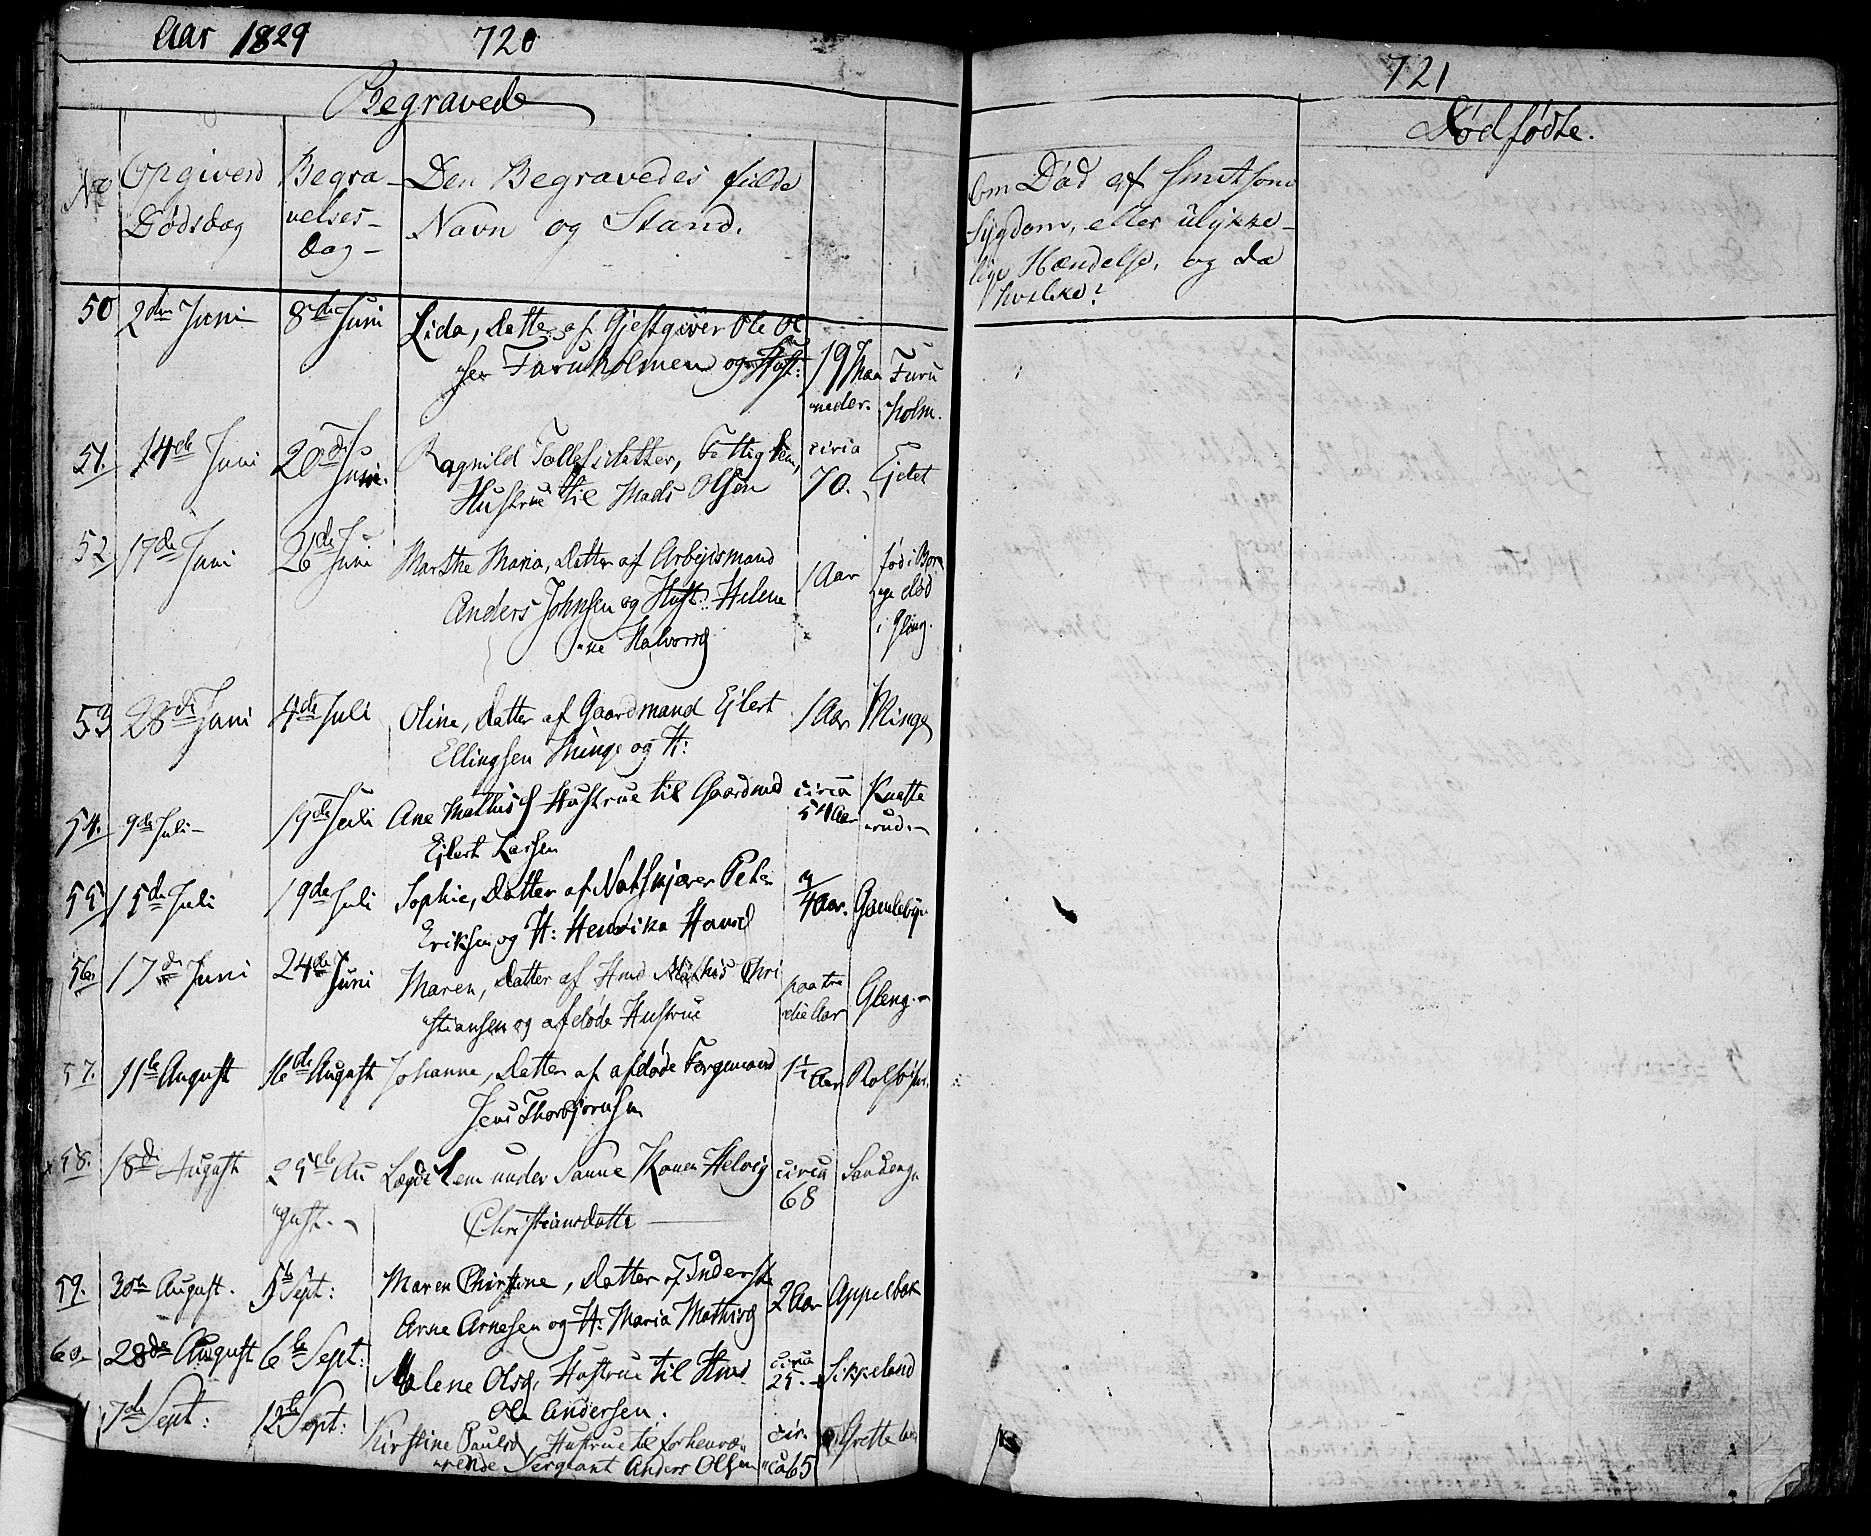 Aar 1829
720
Begravede
No
Opgiven Dødsdag
Begravelses-Dag-
Den Begravedes fulde Navn og Stand.
50 2den Juni 8de Juni Lida, Datter af Gjestgiver Ole Ol
sen Furuholmen og Hust: 19 Maa Furu
neder. holm.
51. 14de Juni 20de Juni. Ragnild Tollefsdatter, Fattiglem, circa
Hustrue til Mads Olsen 70. Ejdet
52 17de Juni 26de Juni Marthe Maria, Datter af Arbejdsmand
Anders Johnsen og Hust: Helene 1 Aar fød i Borge død
Halvorsd i Gleng.
53 28de Juni 4de Juli Oline, Datter af Gaardmand Ejlert 1 Aar Minge
Ellingsen Minge og H:
54. 9de Juli- 19de Juli Ane Mathisd Hustrue til Gaardmd circa
Ejlert Larsen 54 Aar
55. 15de Juli 19de Juli Sophie, Datter af Peter 3/4 Aar. Gamlebyen
Eriksen og H: Henrika Hansd
56. 17de Juni 24de Juni Maren, Datter af Hmd Mathis Chri paa tre Gleng.-
stiansen og afdøde Hustrue die Aar
57. 11te August 16de August Johanne, Datter af afdøde 1½ Aar
Jens Thorbjørnsen
58. 18de August 25de Au Lægdelem under Sanne Konen Helvig circa
gust.- Christiansdatter 68
59. 30te August. 5te Sept: Maren Chirstine, Datter af Inderst 2 Aar Appelbak
Arne Arnesen og H: Maria Mathisd
60. 28de August 6te Sept: Malene Olsd, Hustrue til Hmd circa 25.- Sikkeland
Ole Andersen.
7de Sept: 12te Sept: Kirstine Paulsd, Hustrue til forhenvæ cir-
rende Sergeant Anders Olsen ca 65
721
Dødfødte.
Om Død af smitsom
Sygdom, eller ulykke-
lige Hændelse, og da
hvilke?